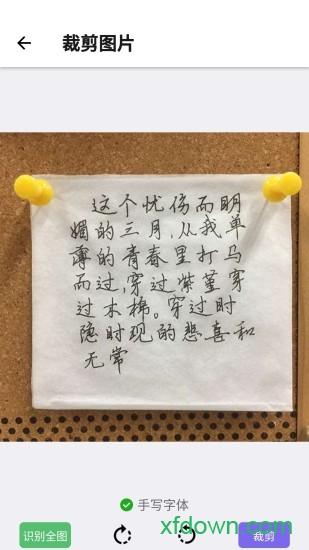 裁剪图片
这个忧伤而明
媚的三月,从我单
薄的青春里打马
而过,穿过紫堇穿
过木棉。穿过时
隐时现的悲喜和
无常
手写字体
识别全图
裁剪
xfdown.com